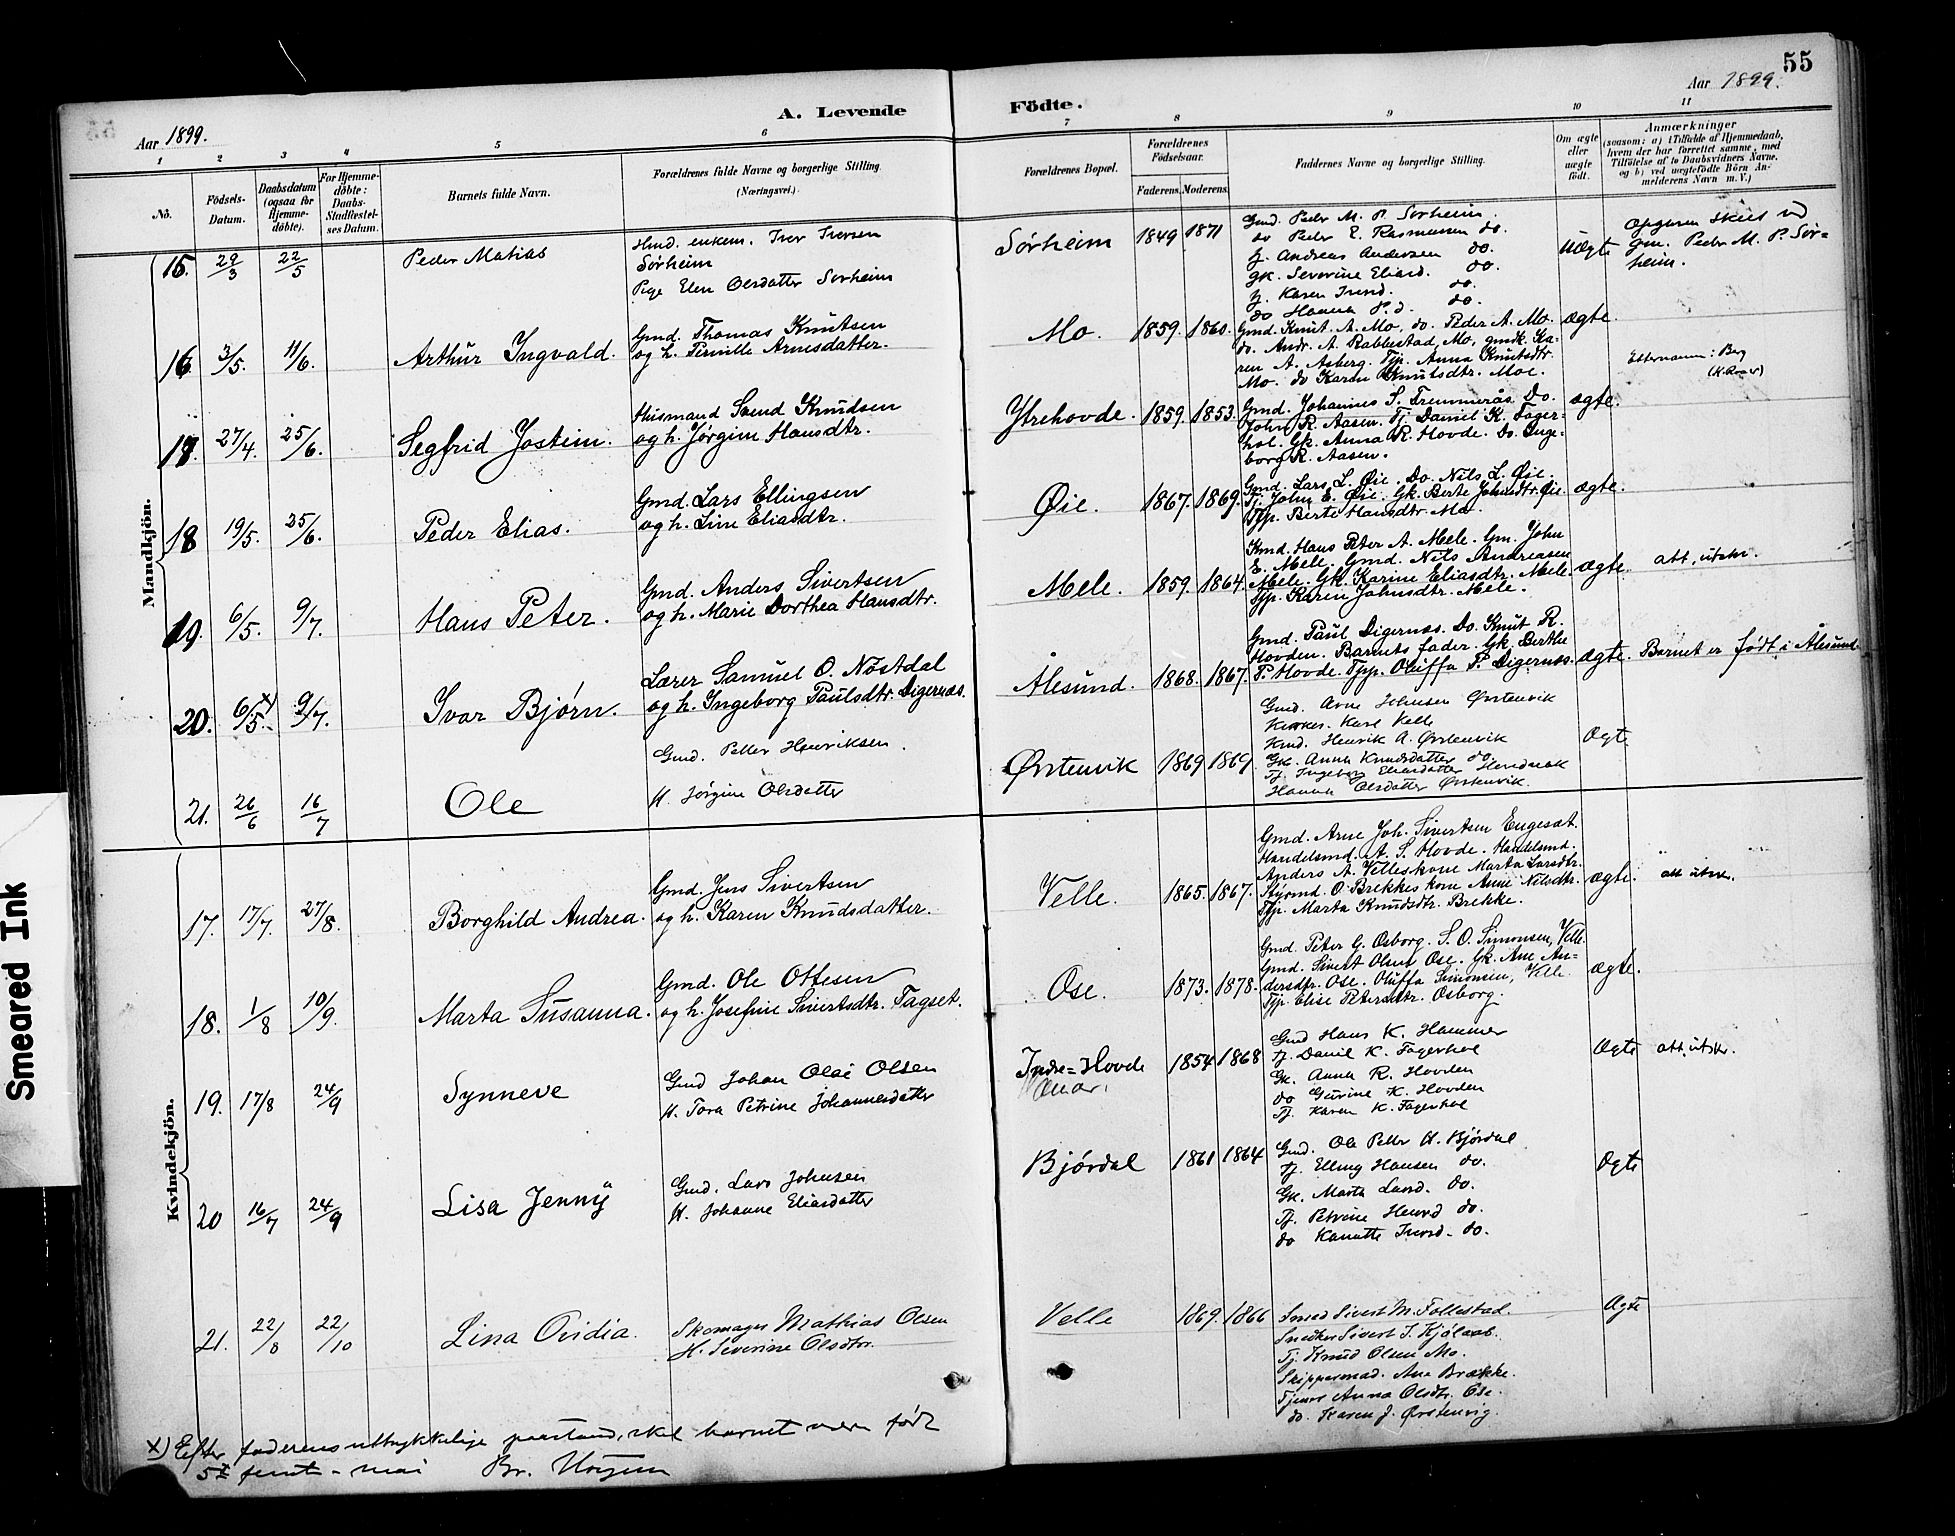 55
A. Levende Födte.
Aar 1899.
Aar 1899.
1 2 3 4 5 6 7 8 9 10 11
No.
Födsels-Datum.
Daabsdatum (ogsaa for Hjemme-döbte).
For Hjemme-döbte: Daabs-Stadfæstel-ses Datum.
Barnets fulde Navn.
Forældrenes fulde Navne og borgerlige Stilling. (Næringsvei.)
Forældrenes Bopæl.
Forældrenes Födselsaar.
Faderens. Moderens.
Faddernes Navne og borgerlige Stilling.
Om ægte eller uægte født.
Anmærkninger
(saasom: a) i Tilfælde af Hjemmedaab, hvem der har forrettet samme, med Tilföielse af to Daabsvidners Navne, og b) ved uægtefödte Börn Anmelderens Navn m. V.)
Mandkjön.
15. 29/3 22/5 Peder Matias
Sørheim
Pige Elen Olsdatter Sørheim
Sørheim 1849 1871
Gmd. Peder M. P. Sørheim.
do Peder E. Rasmussen do.
Tj. Andreas Andersen do.
Gk. Severine Eliasd. do.
Tj. Karen Iversd. do.
Uægte
gm. Peder M. P. Sør=
heim.
16. 3/5. 11/6. Arthur Ingvald.
Gmd. Thomas Knutsen
og h. Pernille Arnesdatter.
Mo. 1859. 1860.
Gmd. Knut A. Mo, do. Peder A. Mo.
do. Andr. A. Rabbestad, Mo, gmdk. Ka-
ren A. Aasberg. Tjp. Anna Knutsdtr.
Mo. do Karen Knutsdtr. Moe.
ægte.
Efternavn: Berg
17. 27/4. 25/6. Segfrid Jostein.
Husmand Svend Knudsen
og h. Jørgine Hansdtr.
Ytrehovde. 1859. 1853.
Gmd. Johannes S. Fremmerås. Do.
John R. Aasen. Tj. Daniel K. Fager-
hol. Gk. Anna R. Hovde. Do. Inge-
borg R. Aasen.
ægte.
18 19/5. 25/6. Peder Elias.
Gmd. Lars Ellingsen
og h. Line Eliasdtr.
Øie. 1867. 1869.
Gmd. Lars L. Øie. Do. Nils L. Øie.
Tj. John E. Øie. Gk. Berte Johnsdtr. Øie
Tjp. Berte Hansdtr. Mo.
ægte.
19. 6/5. 9/7. Hans Peter.
Gmd. Anders Sivertsen
og h. Marie Dorthea Hansdtr.
Mele. 1859. 1864.
Kmd. Hans Peter A. Mele. Gm. John
E. Mele. Gmd. Nils Andreasen
Mele. Gk. Karine Eliasdtr. Mele.
Tjp. Karen Johnsdtr. Mele.
ægte. att. utskr.
20. 6/5. x) 9/7. Ivar Bjørn.
Lærer Samuel O. Nøstdal
og h. Ingeborg Paulsdtr. Digernæs.
Ålesund. 1868. 1867.
Gmd. Paul Digernæs. Do. Knut R.
Hovden. Barnets fader. Gk. Berthe
P. Hovde. Tjp. Oluffa P. Digernæs.
ægte. Barnet er født i Ålesund
21. 26/6 16/7 Ole
Gmd. Petter Henriksen.
H. Jørgine Olsdatter
Ørstenvik 1869 1869
Gmd. Arne Johnsen Ørstenvik
Karl Velle
Kmd. Henrik A. Ørstenvik
Gk. Anna Knudsdatter do
Tj. Ingeborg Eliasdatter
Hanna Olsdatter Ørstenvik.
Ægt.
Kvindekjön.
17. 17/7. 27/8. Borghild Andrea.
Gmd. Jens Sivertsen
og h. Karen Knudsdatter.
Velle. 1865. 1867.
Gmd. Arne Joh. Sivertsen Engesæt.
Handelsmd. A. S. Hovde. Handelsmd.
Anders A. Velleskone Marta Larsdtr.
Styrmd. O. Brekkes kone Anne Nilsdtr.
Tjp. Marta Knudsdtr. Brekke.
ægte. att. utskr.
18. 1/8 10/9. Marta Susanna.
Gmd. Ole Ottesen
og h. Josefine Sivertsdtr. Fagset.
Ose. 1873. 1878.
Gmd. Peter G. Osborg. S. O. Simonsen, Velle.
Gmd. Sivert Olsen Ose. Gk. Ane An-
dersdtr. Ose. Oluffa Simonsen, Velle.
Tjp. Elise Petersdtr. Osborg.
ægte.
19. 17/8 24/9 Synneve
Gmd Johan Olai Olsen
H. Tora Petrine Johannesdatter
Indre=Hovde 1854 1868
Gmd Hans K. Hammer
Tj. Daniel K. Fagerhol
Gk. Anna R. Hovden
do Gurine K. Hovden
Tj. Karen K. Fagerhol
Ægte att. utskr.
20 16/7 24/9 Lisa Jenny
Gmd. Lars Johnsen
H. Johanne Eliasdatter
Bjørdal 1861 1864
Gmd. Ole Petter H. Bjørdal
Tj. Elling Hansen do.
Gk. Marta Larsd. do.
Tj. Petrine Henrd do.
do Kanutte Iversd. do.
Ægte
21. 22/8 22/10 Lina Ovidia.
Skomager Mathias Olsen
H. Severine Olsdtr.
Velle 1869. 1866
Smed Sivert M. Follestad.
Snedker Sivert J. Kjølaas.
Tj. Knud Olsen Mo.
Skippermad. Ane Brække.
Tjener Anna Olsdtr. Ose.
do. Karen J. Ørstenvig.
Ægte
x) Efter faderens uttrykkelige paastand, skal barnet være født
5te femte - mai
Smeared Ink